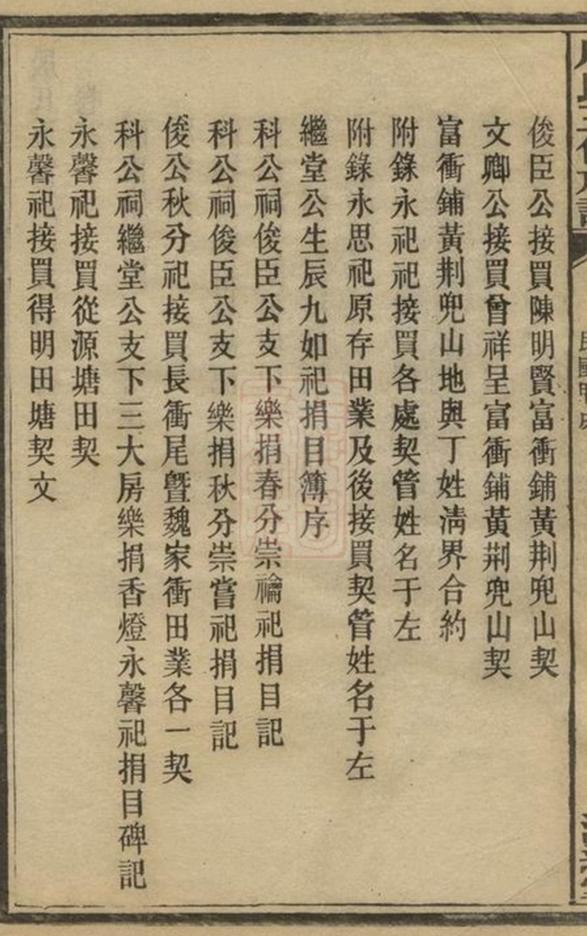 俊臣公接買陳明賢富衝鋪黃荆兜山契
文卿公接買曾祥呈富衝鋪黃荆兜山契
富衝鋪黃荆兜山地與丁姓清界合約
附錄永祀祀接買各處契管姓名于左
附錄永思祀原存田業及後接買契管姓名于左
繼堂公生辰九如祀捐目簿序
科公祠俊臣公支下樂捐春分崇禴祀捐目記
科公祠俊臣公支下樂捐秋分崇嘗祀捐目記
俊公秋分祀接買長衝尾曁魏家衝田業各一契
科公祠繼堂公支下三大房樂捐香燈永馨祀捐目碑記
永馨祀接買從源塘田契
永馨祀接買得明田塘契文